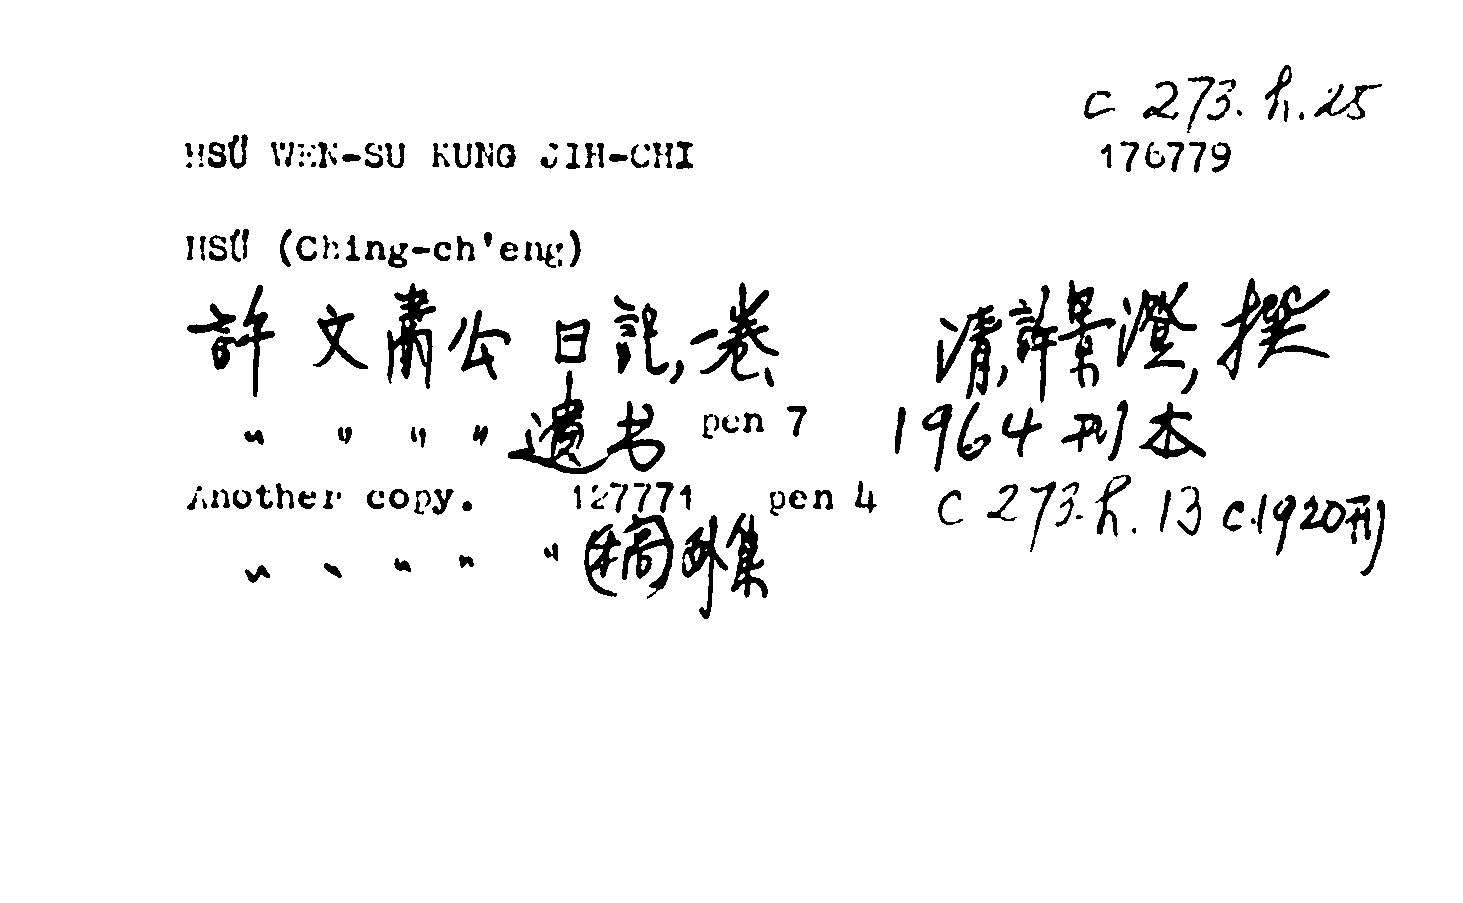 c 273. h. 25
HSÜ WEN-SU KUNG JIH-CHI 176779
HSÜ (Ching-ch'eng)
許文肅公日記,一卷、 清,許景澄,撰
" " " " 遺书 pen 7 1964刊本
Another copy. 127771 pen 4 c 273. h. 13 c.1920刊
" " " " " (稿)外集